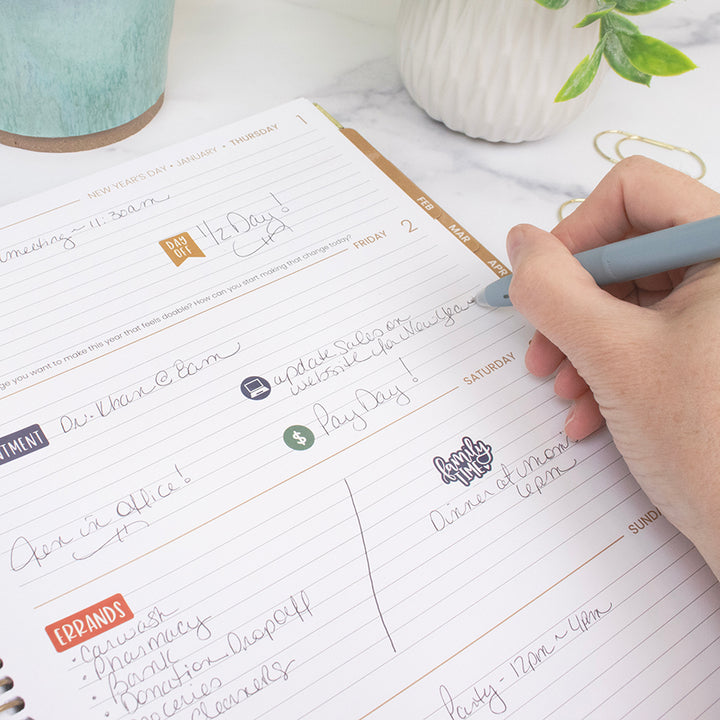 NEW YEAR'S DAY • JANUARY • THURSDAY 1
meeting ~ 11:30am
DAY OFF
1/2 Day!
FEB
MAR
APR
ge you want to make this year that feels doable? How can you start making that change today?
FRIDAY 2
NTMENT
Dr. Khan @ 8am
update sales on
website for New Year
$
PayDay!
SATURDAY
in Office!
family TIME!
Dinner at mom's
6pm
SUND
ERRANDS
• Carwash
• Pharmacy
• Bank
• Donation Dropoff
Groceries
Cleaners
Party - 12pm ~ 4pm